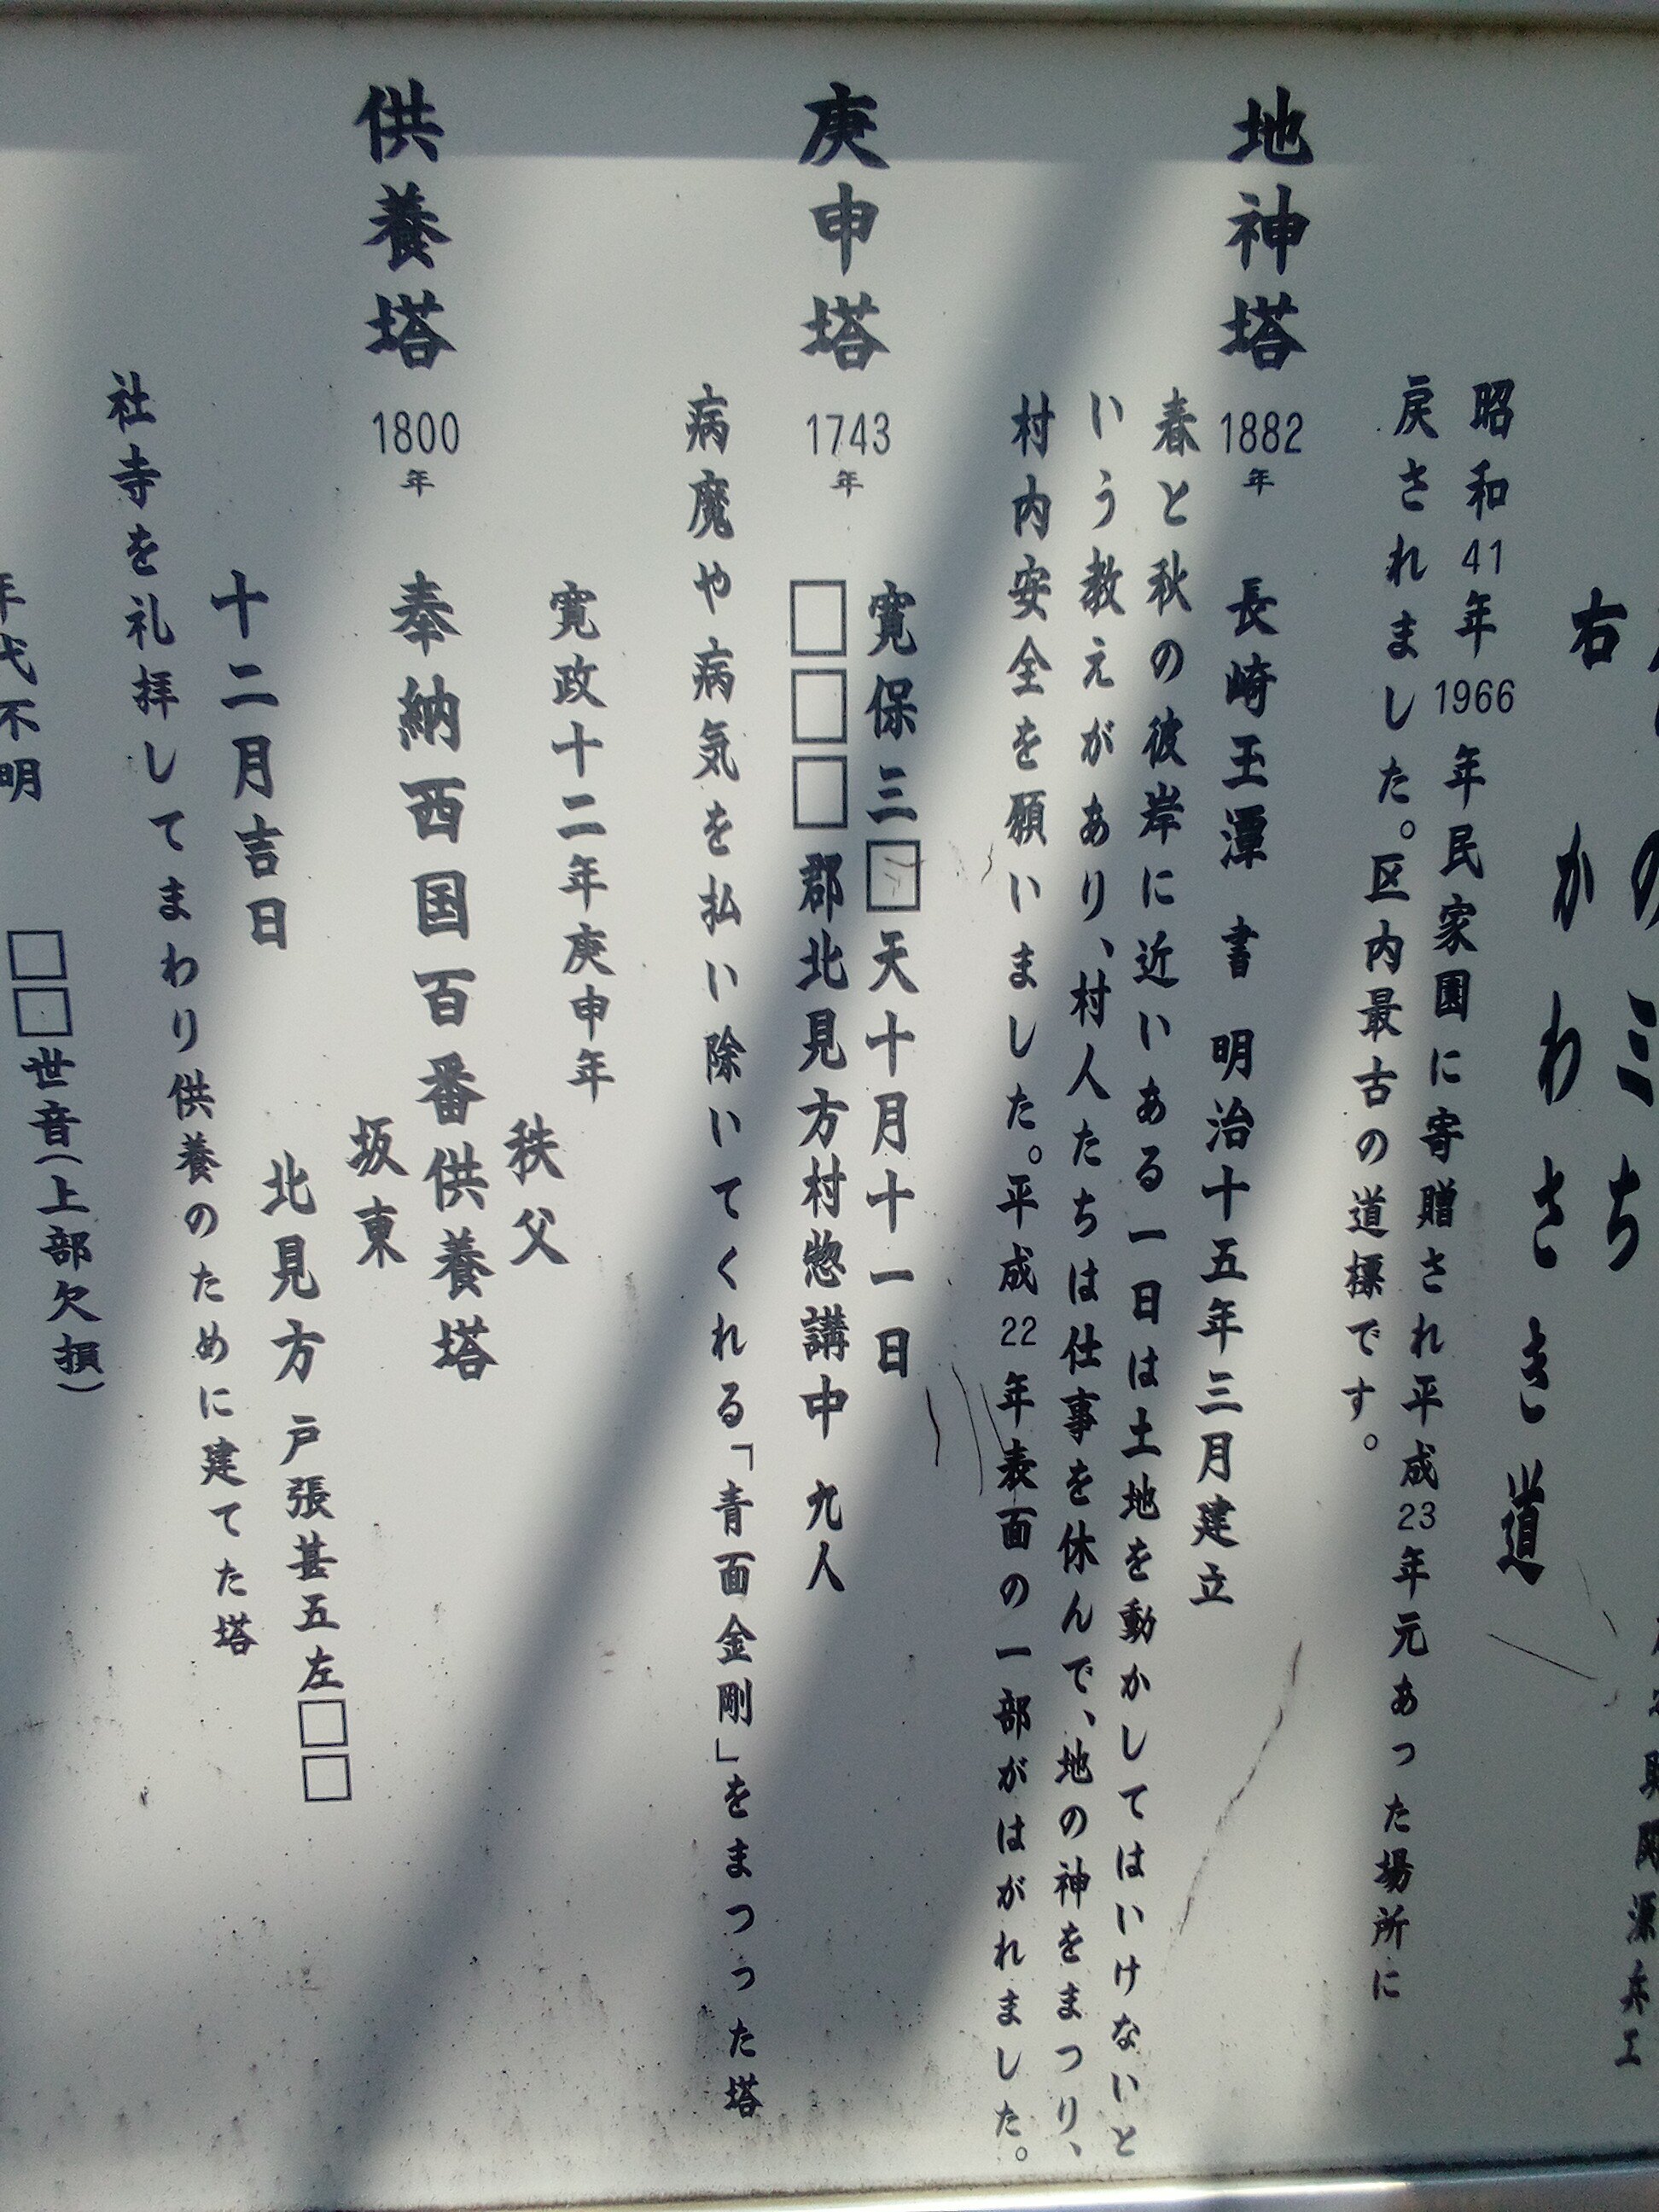 右 かわさき道
昭和41年1966年民家園に寄贈され平成23年元あった場所に
戻されました。区内最古の道標です。
地神塔 1882年 長崎玉潭 書 明治十五年三月建立
春と秋の彼岸に近いある一日は土地を動かしてはいけないと
いう教えがあり、村人たちは仕事を休んで、地の神をまつり、
村内安全を願いました。平成22年表面の一部がはがれました。
寛保三□天十月十一日
庚申塔 1743年 □□□郡北見方村惣講中 九人
病魔や病気を払い除いてくれる「青面金剛」をまつった塔
寛政十二年庚申年
秩父
供養塔 1800年 奉納西国百番供養塔
坂東
北見方 戸張甚五左□□
十二月吉日
社寺を礼拝してまわり供養のために建てた塔
□□世音(上部欠損)
年代不明